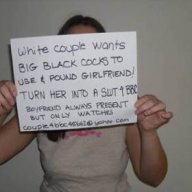 White couple wants
BIG BLACK COCKS TO
USE & POUND GIRLFRIEND!
TURN HER INTO A SLUT 4 BBC
BOYFRIEND ALWAYS PRESENT
BUT ONLY WATCHES